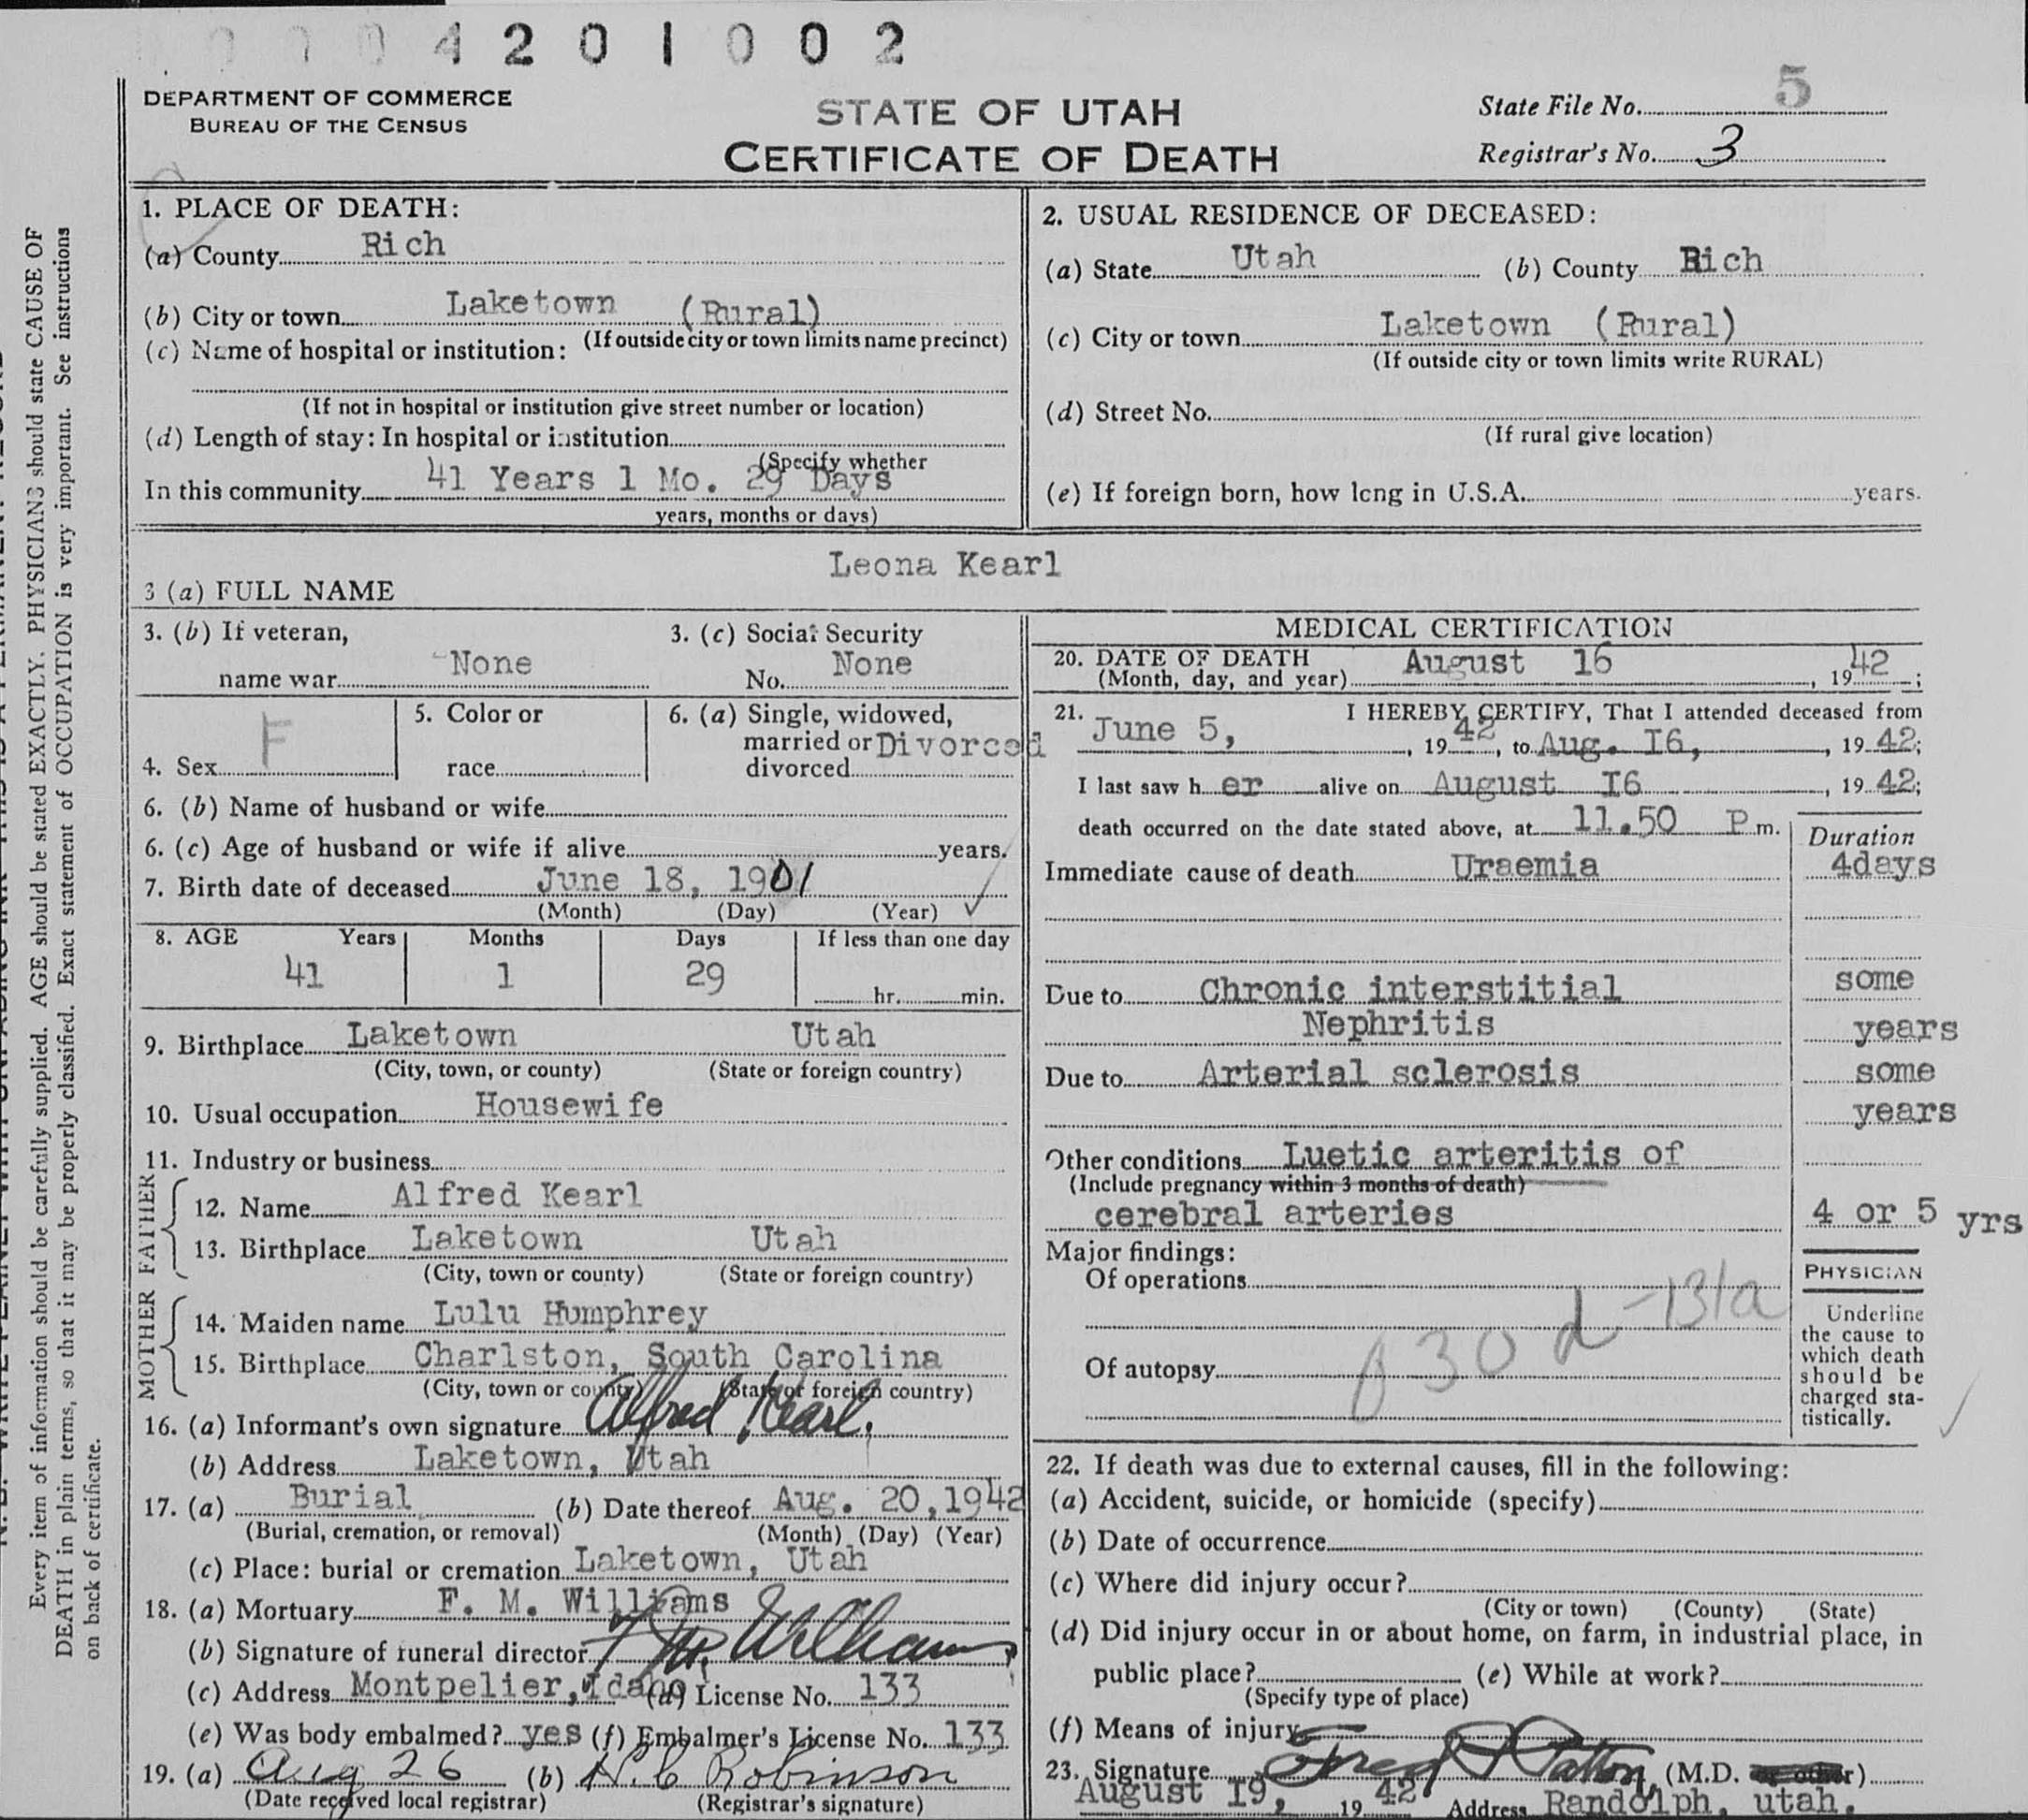 0004201002
DEPARTMENT OF COMMERCE
BUREAU OF THE CENSUS
STATE OF UTAH
CERTIFICATE OF DEATH
State File No. 5
Registrar's No. 3
1. PLACE OF DEATH:
(a) County Rich
(b) City or town Laketown (Rural)
(If outside city or town limits name precinct)
(c) Name of hospital or institution:
(If not in hospital or institution give street number or location)
(d) Length of stay: In hospital or institution
(Specify whether
In this community 41 Years 1 Mo. 29 Days
years, months or days)
2. USUAL RESIDENCE OF DECEASED:
(a) State Utah (b) County Rich
(c) City or town Laketown (Rural)
(If outside city or town limits write RURAL)
(d) Street No.
(If rural give location)
(e) If foreign born, how long in U.S.A. years.
3 (a) FULL NAME Leona Kearl
3. (b) If veteran,
name war None
3. (c) Social Security
No. None
4. Sex F
5. Color or
race
6. (a) Single, widowed,
married or
divorced Divorced
6. (b) Name of husband or wife
6. (c) Age of husband or wife if alive years.
7. Birth date of deceased June 18, 1901
(Month) (Day) (Year)
8. AGE Years Months Days If less than one day
41 1 29 hr. min.
9. Birthplace Laketown Utah
(City, town, or county) (State or foreign country)
10. Usual occupation Housewife
11. Industry or business
FATHER
12. Name Alfred Kearl
13. Birthplace Laketown Utah
(City, town or county) (State or foreign country)
MOTHER
14. Maiden name Lulu Humphrey
15. Birthplace Charlston, South Carolina
(City, town or county) (State or foreign country)
16. (a) Informant's own signature Alfred Kearl.
(b) Address Laketown, Utah
17. (a) Burial (b) Date thereof Aug. 20, 1942
(Burial, cremation, or removal) (Month) (Day) (Year)
(c) Place: burial or cremation Laketown, Utah
18. (a) Mortuary F. M. Williams
(b) Signature of funeral director F. M. Williams
(c) Address Montpelier, Idaho (d) License No. 133
(e) Was body embalmed? yes (f) Embalmer's License No. 133
19. (a) Aug 26 (b) N. C Robinson
(Date received local registrar) (Registrar's signature)
MEDICAL CERTIFICATION
20. DATE OF DEATH
(Month, day, and year) August 16, 1942;
21. I HEREBY CERTIFY, That I attended deceased from
June 5, 1942, to Aug. I6, 1942;
I last saw her alive on August I6, 1942;
death occurred on the date stated above, at 11.50 P m.
Duration
Immediate cause of death Uraemia 4days
Due to Chronic interstitial some
Nephritis years
Due to Arterial sclerosis some
years
Other conditions Luetic arteritis of
(Include pregnancy within 3 months of death)
cerebral arteries 4 or 5 yrs
Major findings:
Of operations
030d-131a
Of autopsy
PHYSICIAN
Underline
the cause to
which death
should be
charged sta-
tistically.
22. If death was due to external causes, fill in the following:
(a) Accident, suicide, or homicide (specify)
(b) Date of occurrence
(c) Where did injury occur?
(City or town) (County) (State)
(d) Did injury occur in or about home, on farm, in industrial place, in
public place? (e) While at work?
(Specify type of place)
(f) Means of injury
23. Signature (M.D. or other)
August I9, 1942 Address Randolph, utah.
Every item of information should be carefully supplied. AGE should be stated EXACTLY. PHYSICIANS should state CAUSE OF
DEATH in plain terms, so that it may be properly classified. Exact statement of OCCUPATION is very important. See instructions
on back of certificate.